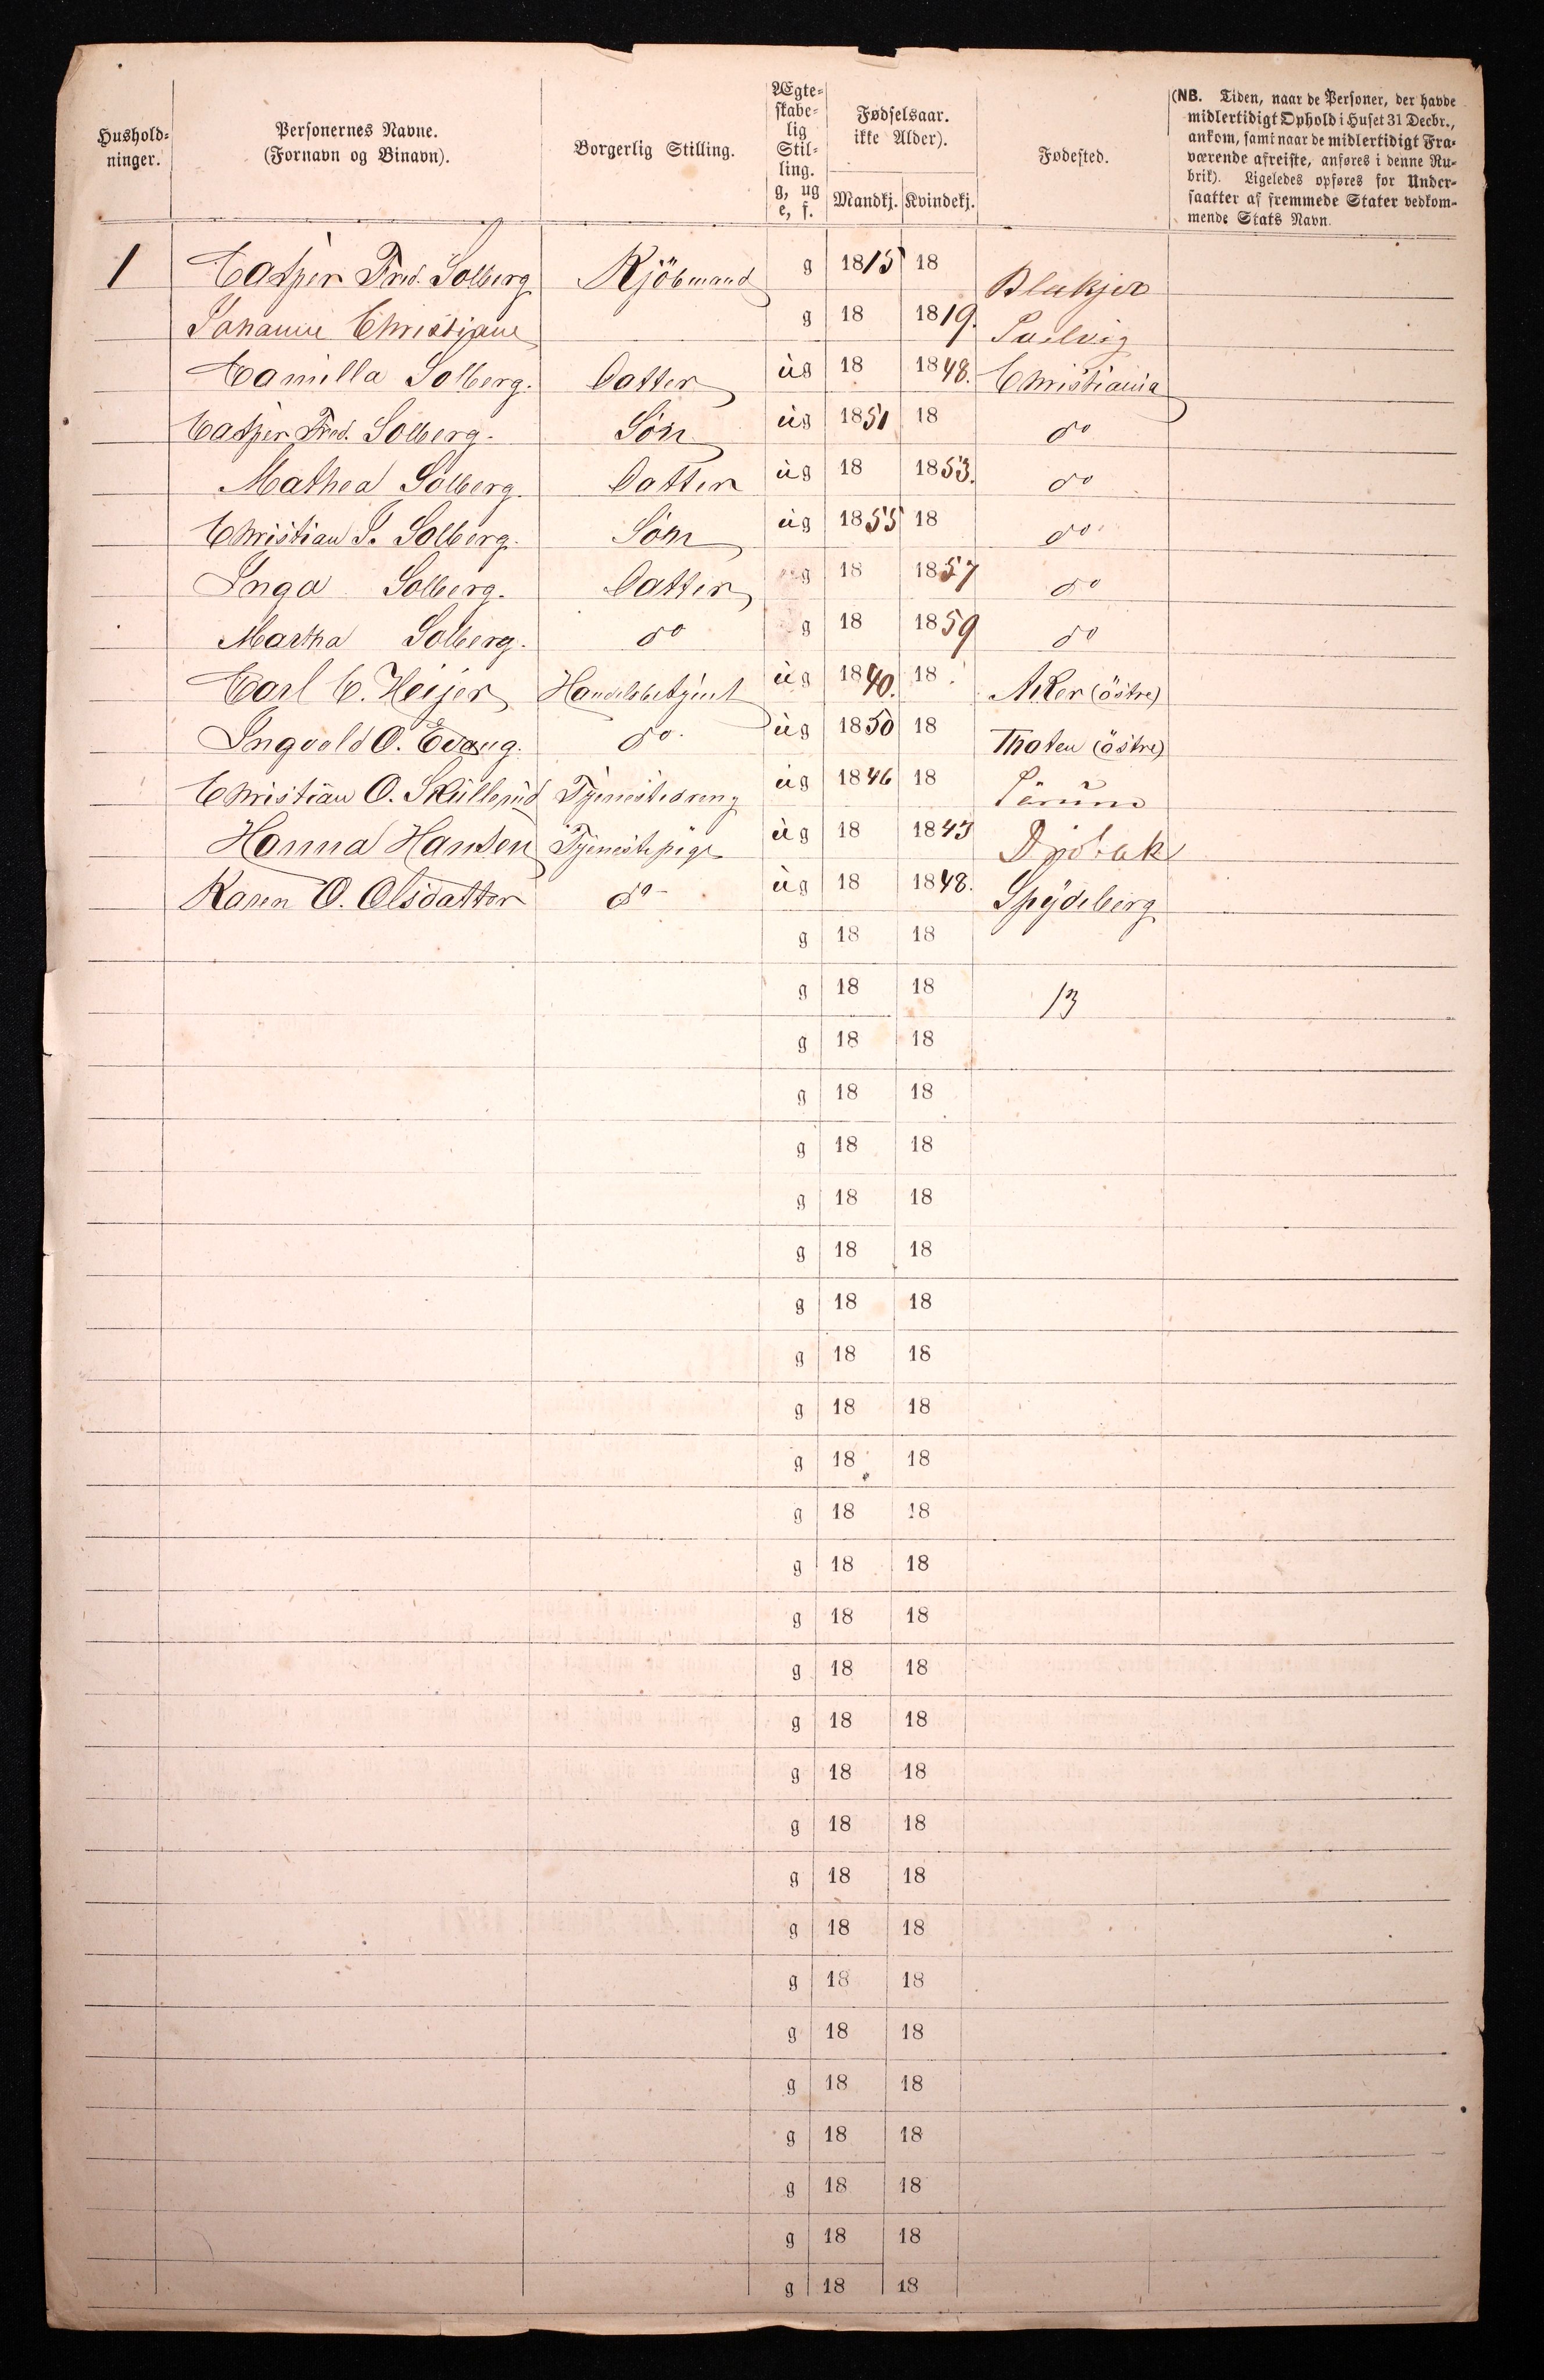 Hushold-
ninger.
Personernes Navne.
(Fornavn og Binavn).
Borgerlig Stilling.
Ægte-
skabe-
lig
Stil-
ling.
g, ug
e, f.
Fødselsaar.
ikke Alder).
Mandkj. Kvindekj.
Fødested.
(NB. Tiden, naar de Personer, der havde
midlertidigt Ophold i Huset 31 Decbr.,
ankom, samt naar de midlertidigt Fra-
værende afreiste, anføres i denne Ru-
brik). Ligeledes opføres for Under-
saatter af fremmede Stater vedkom-
mende Stats Navn.
1 Casper Fred. Solberg Kjöbmand g 1815 18 Blakjer
Johanne Christiane g 18 1819.
Camilla Solberg. Datter ùg 18 1848. Christiania
Casper Fred. Solberg. Sön ùg 1851 18 do
Mathea Solberg. Datter ùg 18 1853. do
Christian J. Solberg. Sön ùg 1855 18 do
Inga Solberg. Datter g 18 1857 do
Martha Solberg. do g 18 1859 do
Carl C. Heijer Handelsbetjent ùg 1840. 18 Aker (östre)
Ingvold O. Evang. do. ùg 1850 18 Thoten (östre)
Christian O. Skullerud Tjenestedreng ùg 1846 18 Sörum
Hanna Hansen Tjenestepige ùg 18 1843 Dröbak
Karen O. Olsdatter do ùg 18 1848. Spydeberg
g 18 18
g 18 18 13
g 18 18
g 18 18
g 18 18
g 18 18
g 18 18
g 18 18
g 18 18
g 18 18
g 18 18
g 18 18
g 18 18
g 18 18
g 18 18
g 18 18
g 18 18
g 18 18
g 18 18
g 18 18
g 18 18
g 18 18
g 18 18
g 18 18
g 18 18
g 18 18
g 18 18